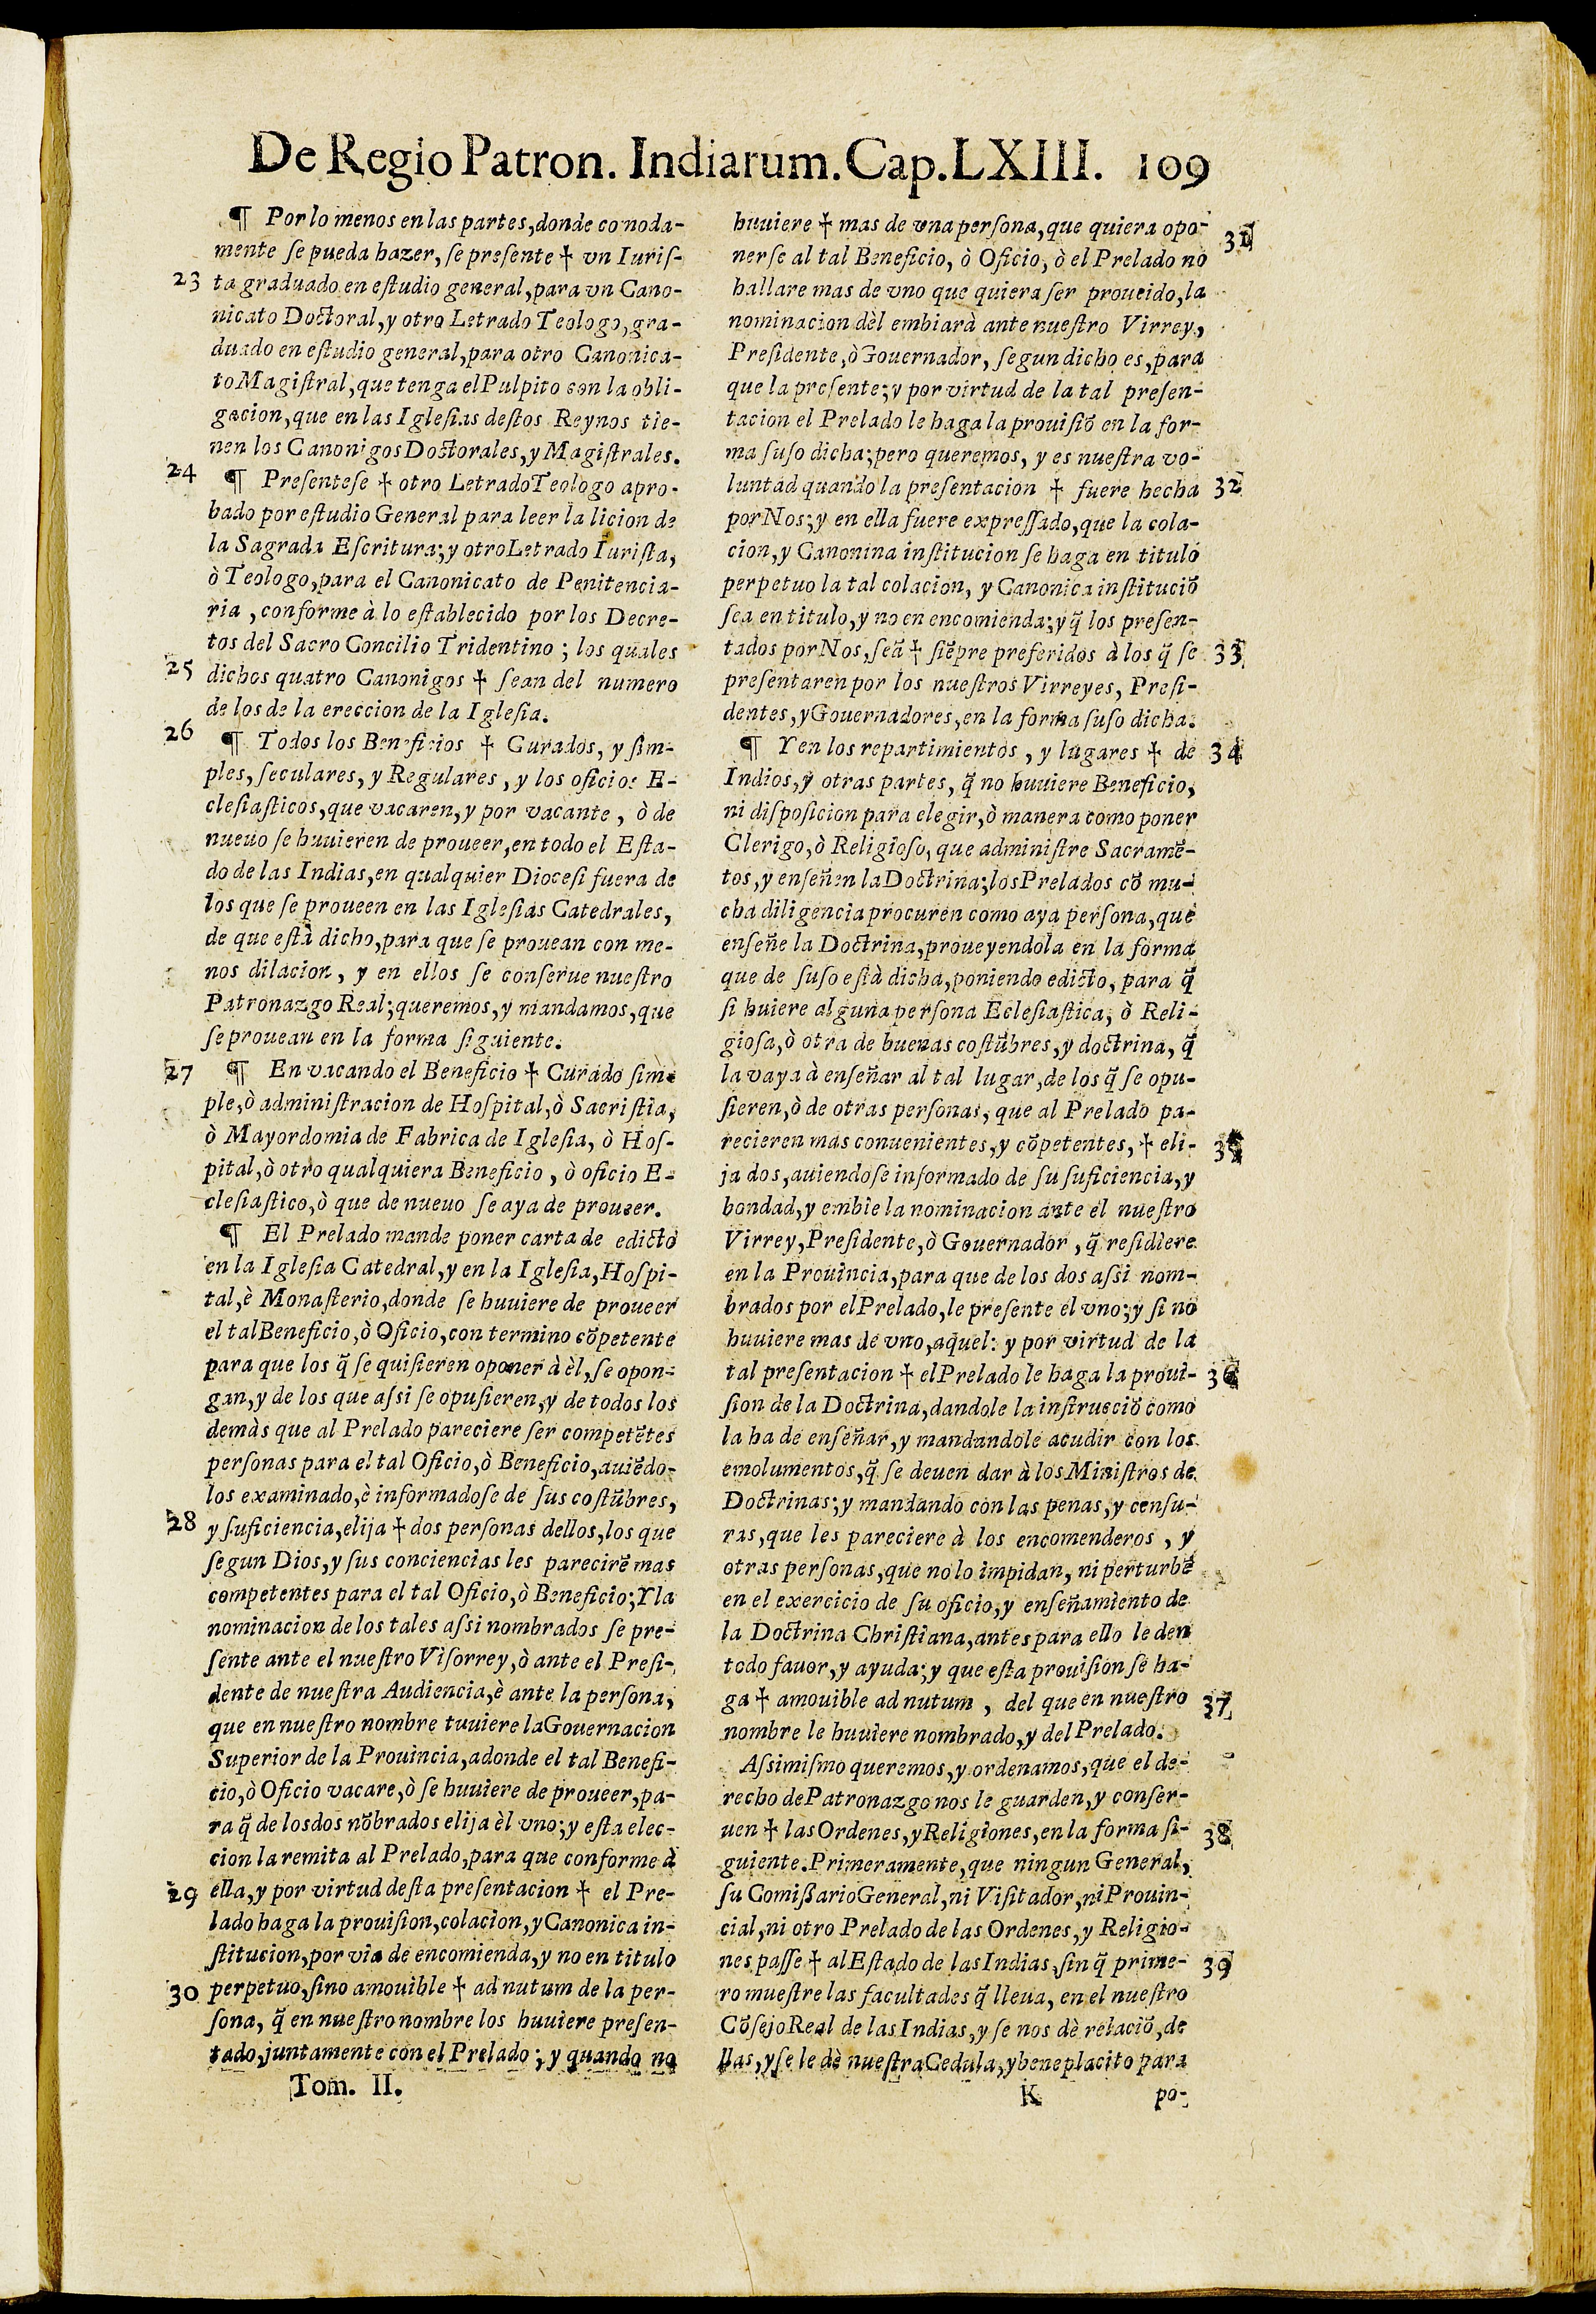 De Regio Patron. Indiarum. Cap. LXIII. 109
¶ Por lo menos en las partes, donde comoda-
mente ſe pueda hazer, ſe preſente † vn Iuriſ-
23 ta graduado en eſtudio general, para vn Cano-
nicato Doctoral, y otro Letrado Teologo, gra-
duado en eſtudio general, para otro Canonica-
to Magiſtral, que tenga el Pulpito con la obli-
gacion, que en las Igleſias deſtos Reynos tie-
nen los Canonigos Doctorales, y Magiſtrales.
24 ¶ Preſenteſe † otro Letrado Teologo apro-
bado por eſtudio General para leer la licion de
la Sagrada Eſcritura; y otro Letrado Iuriſta,
ò Teologo, para el Canonicato de Penitencia-
ria, conforme à lo eſtablecido por los Decre-
tos del Sacro Concilio Tridentino; los quales
25 dichos quatro Canonigos † ſean del numero
de los de la ereccion de la Igleſia.
26 ¶ Todos los Beneficios † Curados, y ſim-
ples, ſeculares, y Regulares, y los oficios E-
cleſiaſticos, que vacaren, y por vacante, ò de
nueuo ſe huuieren de proueer, en todo el Eſta-
do de las Indias, en qualquier Dioceſi fuera de
los que ſe proueen en las Igleſias Catedrales,
de que eſtà dicho, para que ſe prouean con me-
nos dilacion, y en ellos ſe conſerue nueſtro
Patronazgo Real; queremos, y mandamos, que
ſe prouean en la forma ſiguiente.
27 ¶ En vacando el Beneficio † Curado ſim-
ple, ò adminiſtracion de Hoſpital, ò Sacriſtia,
ò Mayordomia de Fabrica de Igleſia, ò Hoſ-
pital, ò otro qualquiera Beneficio, ò oficio E-
cleſiaſtico, ò que de nueuo ſe aya de proueer.
¶ El Prelado mande poner carta de edicto
en la Igleſia Catedral, y en la Igleſia, Hoſpi-
tal, è Monaſterio, donde ſe huuiere de proueer
el tal Beneficio, ò Oficio, con termino cõpetente
para que los q̃ ſe quiſieren oponer à èl, ſe opon-
gan, y de los que aſsi ſe opuſieren, y de todos los
demàs que al Prelado pareciere ſer competẽtes
perſonas para el tal Oficio, ò Beneficio, auiẽdo-
los examinado, è informadoſe de ſus coſtũbres,
28 y ſuficiencia, elija † dos perſonas dellos, los que
ſegun Dios, y ſus conciencias les parecirẽ mas
competentes para el tal Oficio, ò Beneficio; Y la
nominacion de los tales aſsi nombrados ſe pre-
ſente ante el nueſtro Viſorrey, ò ante el Preſi-
dente de nueſtra Audiencia, è ante la perſona,
que en nueſtro nombre tuuiere la Gouernacion
Superior de la Prouincia, adonde el tal Benefi-
cio, ò Oficio vacare, ò ſe huuiere de proueer, pa-
ra q̃ de los dos nõbrados elija èl vno; y eſta elec-
cion la remita al Prelado, para que conforme à
29 ella, y por virtud deſta preſentacion † el Pre-
lado haga la prouiſion, colacion, y Canonica in-
ſtitucion, por via de encomienda, y no en titulo
30 perpetuo, ſino amouible † ad nutum de la per-
ſona, q̃ en nueſtro nombre los huuiere preſen-
tado, juntamente con el Prelado; y quando no
Tom. II.
huuiere † mas de vna perſona, que quiera opo- 31
nerſe al tal Beneficio, ò Oficio, ò el Prelado no
hallare mas de vno que quiera ſer proueido, la
nominacion dèl embiarà ante nueſtro Virrey,
Preſidente, ò Gouernador, ſegun dicho es, para
que la preſente; y por virtud de la tal preſen-
tacion el Prelado le haga la prouiſiõ en la for-
ma ſuſo dicha; pero queremos, y es nueſtra vo-
luntad quando la preſentacion † fuere hecha 32
por Nos; y en ella fuere expreſſado, que la cola-
cion, y Canonina inſtitucion ſe haga en titulo
perpetuo la tal colacion, y Canonica inſtituciõ
ſea en titulo, y no en encomienda; y q̃ los preſen-
tados por Nos, ſeã † ſiẽpre preferidos à los q̃ ſe 33
preſentaren por los nueſtros Virreyes, Preſi-
dentes, y Gouernadores, en la forma ſuſo dicha.
¶ Y en los repartimientos, y lugares † de 34
Indios, y otras partes, q̃ no huuiere Beneficio,
ni diſpoſicion para elegir, ò manera como poner
Clerigo, ò Religioſo, que adminiſtre Sacramẽ-
tos, y enſeñen la Doctrina; los Prelados cõ mu-
cha diligencia procuren como aya perſona, que
enſeñe la Doctrina, proueyendola en la forma
que de ſuſo eſtà dicha, poniendo edicto, para q̃
ſi huiere alguna perſona Ecleſiaſtica, ò Reli-
gioſa, ò otra de buenas coſtũbres, y doctrina, q̃
la vaya à enſeñar al tal lugar, de los q̃ ſe opu-
ſieren, ò de otras perſonas, que al Prelado pa-
recieren mas conuenientes, y cõpetentes, † eli- 35
ja dos, auiendoſe informado de ſu ſuficiencia, y
bondad, y embie la nominacion ante el nueſtro
Virrey, Preſidente, ò Gouernador, q̃ reſidiere
en la Prouincia, para que de los dos aſsi nom-
brados por el Prelado, le preſente el vno; y ſi no
huuiere mas de vno, aquel: y por virtud de la
tal preſentacion † el Prelado le haga la proui- 36
ſion de la Doctrina, dandole la inſtrucciõ como
la ha de enſeñar, y mandandole acudir con los
emolumentos, q̃ ſe deuen dar à los Miniſtros de
Doctrinas; y mandando con las penas, y cenſu-
ras, que les pareciere à los encomenderos, y
otras perſonas, que no lo impidan, ni perturbẽ
en el exercicio de ſu oficio, y enſeñamiento de
la Doctrina Chriſtiana, antes para ello le den
todo fauor, y ayuda; y que eſta prouiſion ſe ha-
ga † amouible ad nutum, del que en nueſtro 37
nombre le huuiere nombrado, y del Prelado.
Aſsimiſmo queremos, y ordenamos, que el de-
recho de Patronazgo nos le guarden, y conſer-
uen † las Ordenes, y Religiones, en la forma ſi- 38
guiente. Primeramente, que ningun General,
ſu Comiſſario General, ni Viſitador, ni Prouin-
cial, ni otro Prelado de las Ordenes, y Religio-
nes paſſe † al Eſtado de las Indias, ſin q̃ prime- 39
ro mueſtre las facultades q̃ lleua, en el nueſtro
Cõſejo Real de las Indias, y ſe nos dè relaciõ, de
llas, y ſe le dè nueſtra Cedula, y beneplacito para
K po-